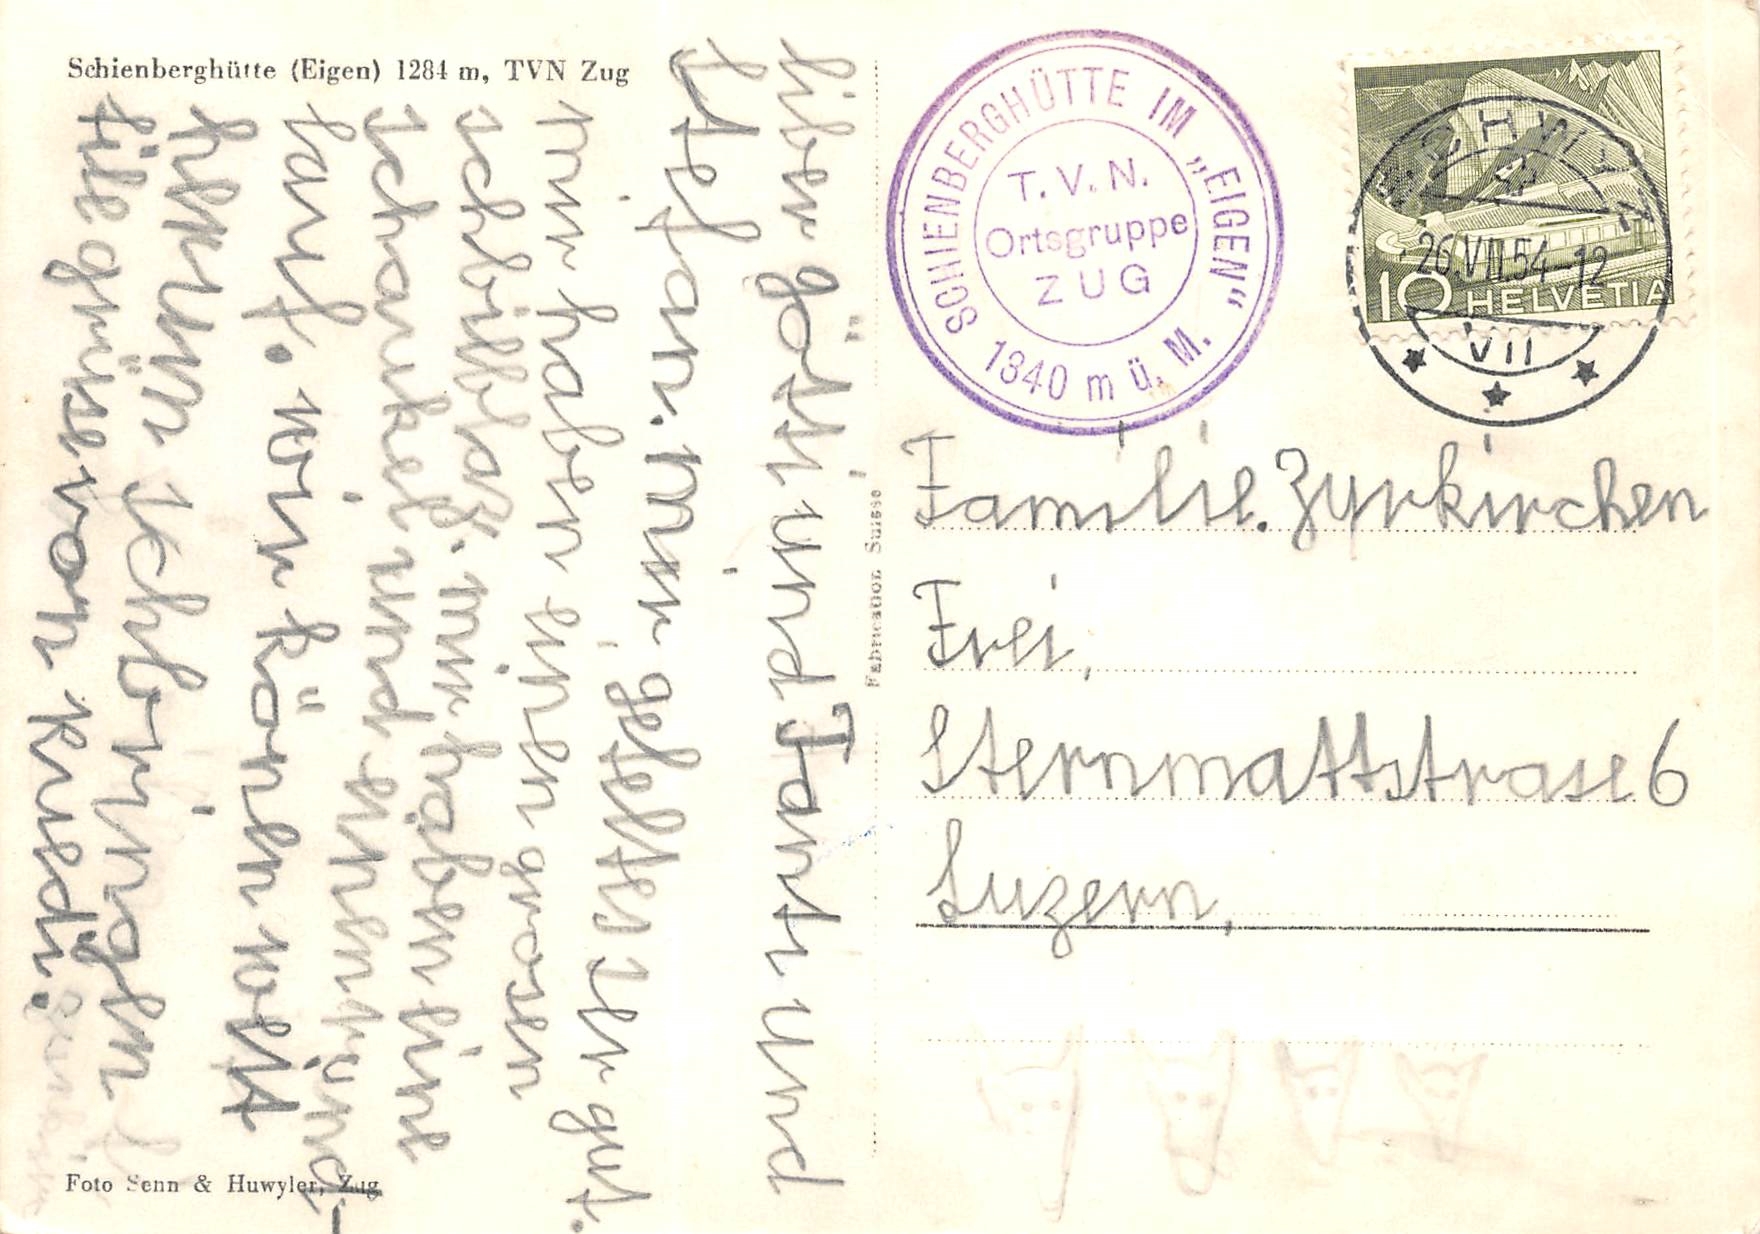 Schienberghütte (Eigen) 1284 m, TVN Zug
liber götti und Tanti und
Stefan. Mir gefeltes ser gut.
mir haben einen grosen
schbilblaz. mir haben eine
schaukel und einen rund-
lauf. wir könen wett
schbringen
file grüse von Ruedi.
Foto Senn & Huwyler, Zug
Fabrication Suisse
SCHIENBERGHÜTTE IM „EIGEN“
T.V.N.
Ortsgruppe
ZUG
1340 m ü. M.
SCHWYZ
26.VII.54-12
VII
10 HELVETIA
Familie. Zyrkirchen
Frei,
Sternmattstrase 6
Luzern,